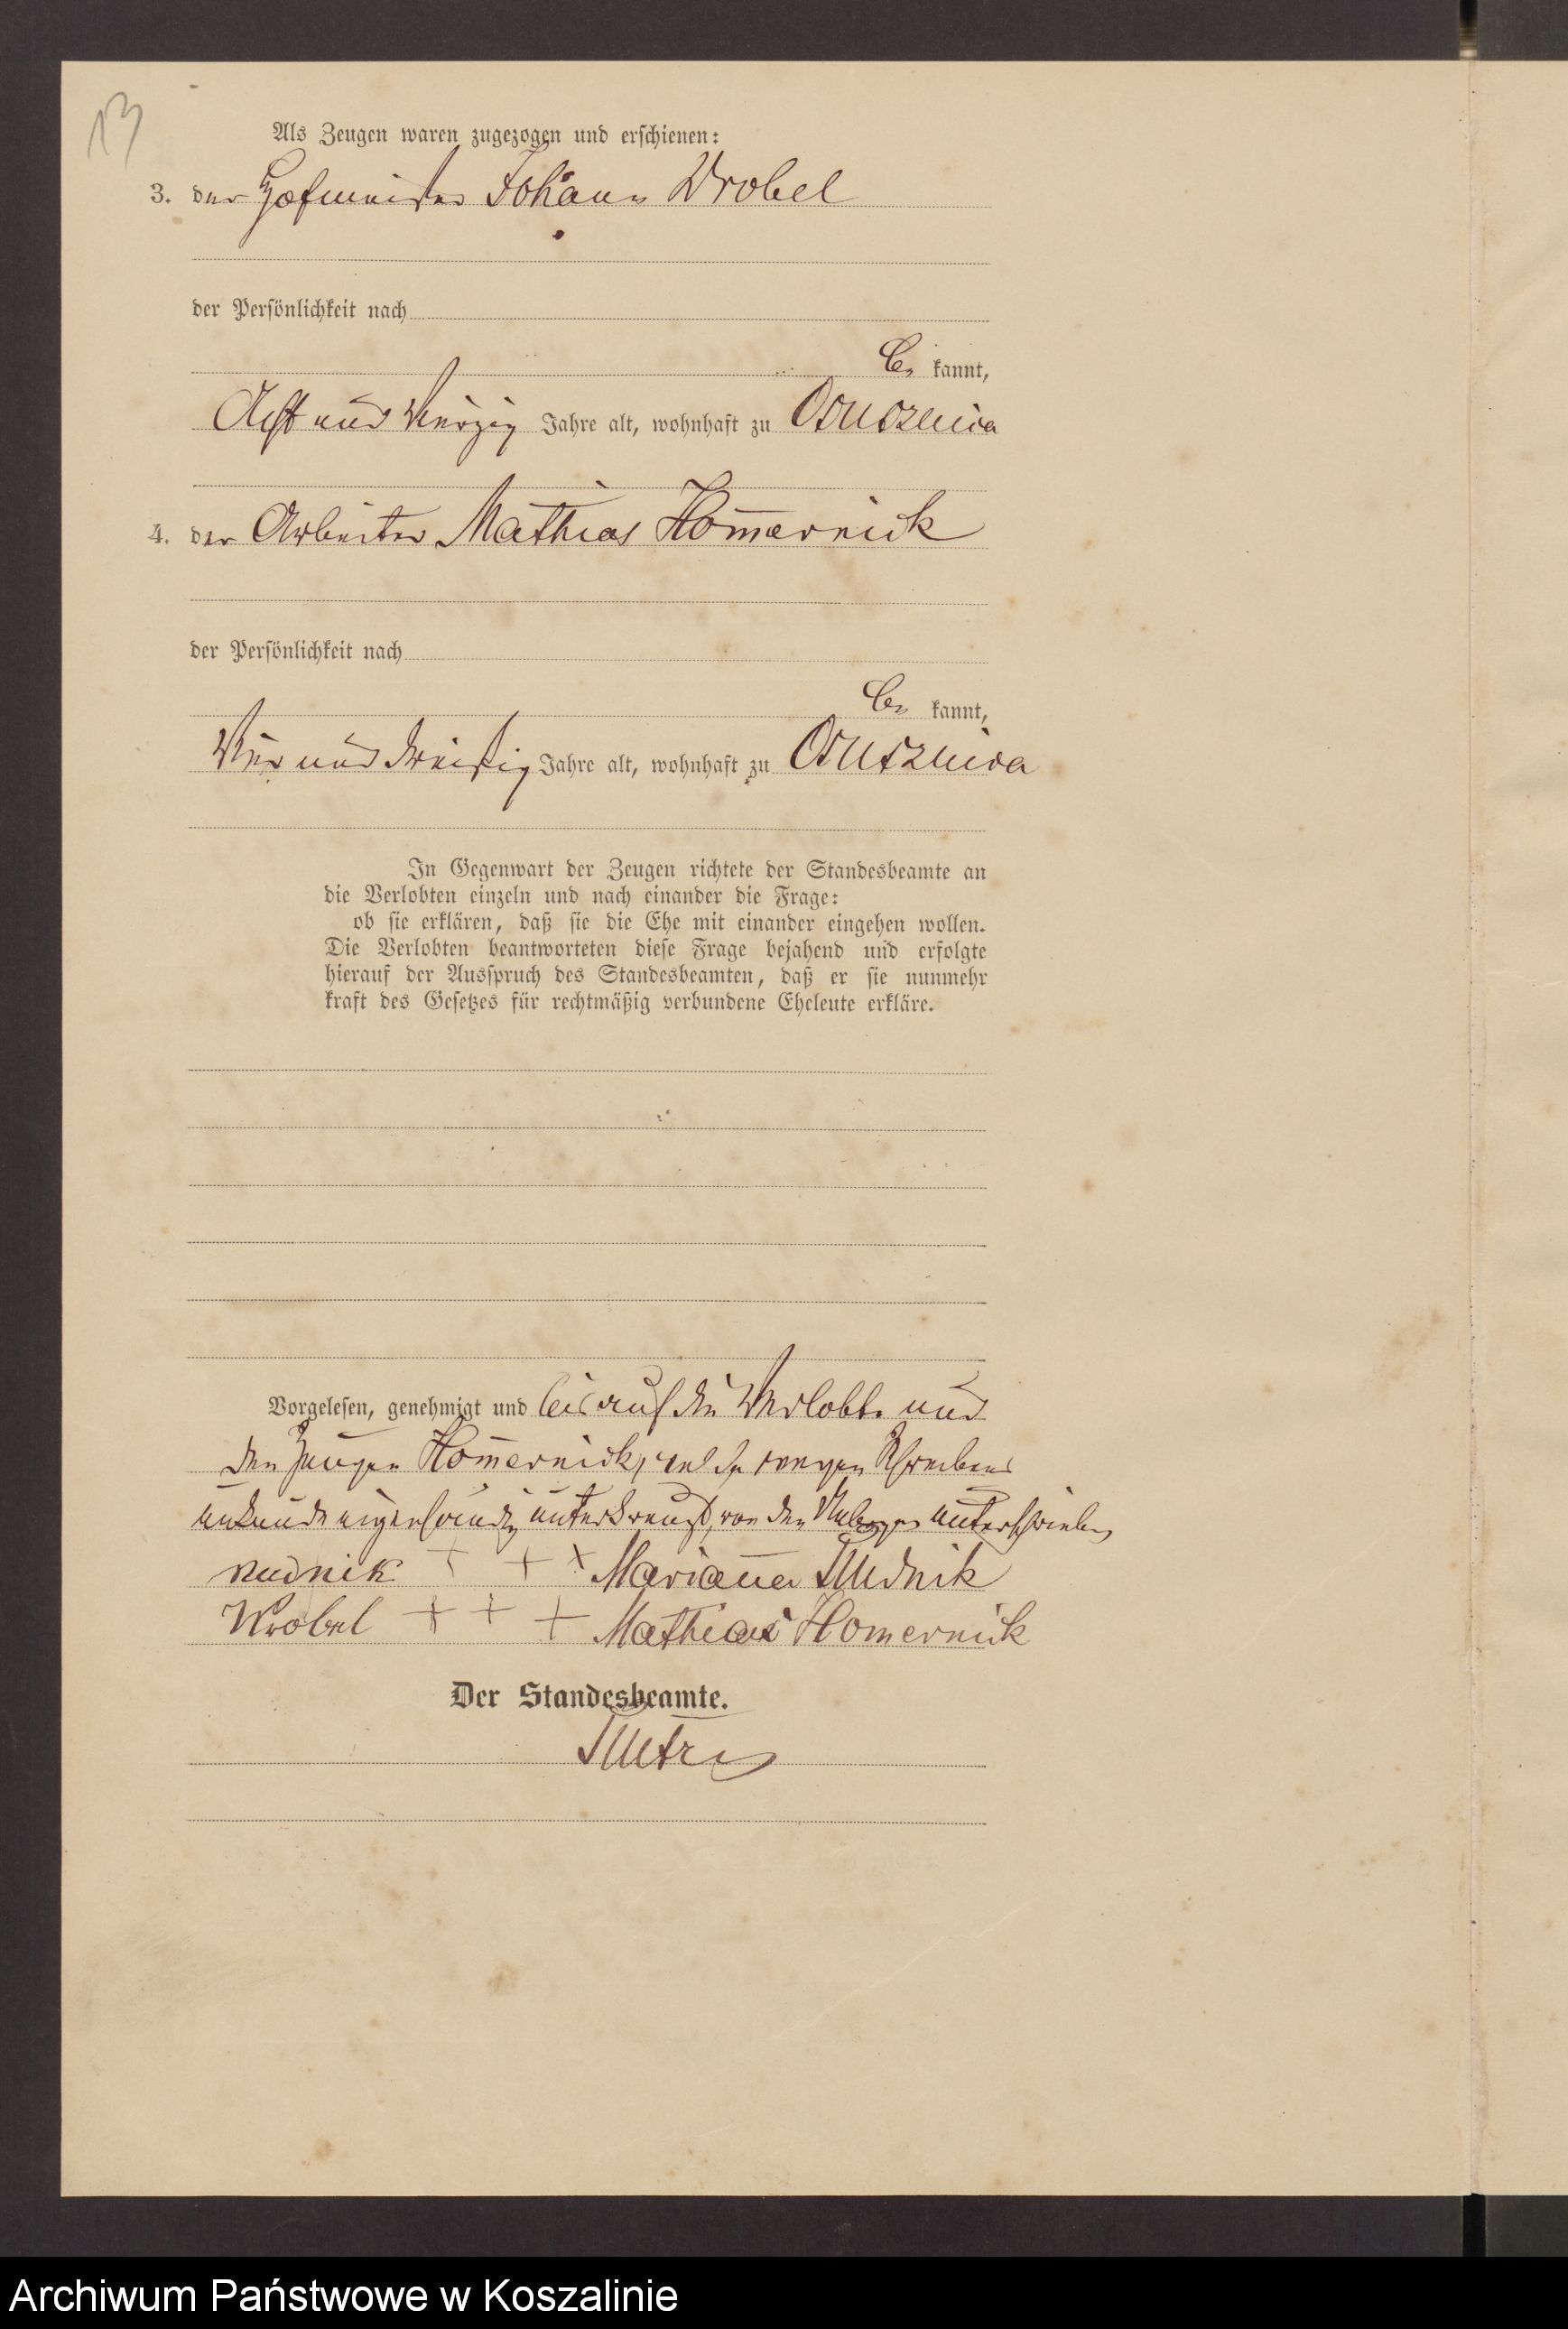 13
Als Zeugen waren zugezogen und erschienen:
3. der Hofmeister Johann Wrobel
der Persönlichkeit nach
be kannt,
Acht und Vierzig Jahre alt, wohnhaft zu Osusznica
4. der Arbeiter Mathias Hom̄ernick
der Persönlichkeit nach
be kannt,
Vier und dreißig Jahre alt, wohnhaft zu Osusznica
In Gegenwart der Zeugen richtete der Standesbeamte an
die Verlobten einzeln und nach einander die Frage:
ob sie erklären, daß sie die Ehe mit einander eingehen wollen.
Die Verlobten beantworteten diese Frage bejahend und erfolgte
hierauf der Ausspruch des Standesbeamten, daß er sie nunmehr
kraft des Gesetzes für rechtmäßig verbundene Eheleute erkläre.
Vorgelesen, genehmigt und bis auf die Verlobte und
den Zeugen Hom̄ernick, welche wegen Schreibens
unkunde eigenhändig unterkreuzt, von den unterschrieben
Rudnik + + + Marianna Rudnik
Wrobel + + + Mathias Homernick
Der Standesbeamte.
Archiwum Państwowe w Koszalinie